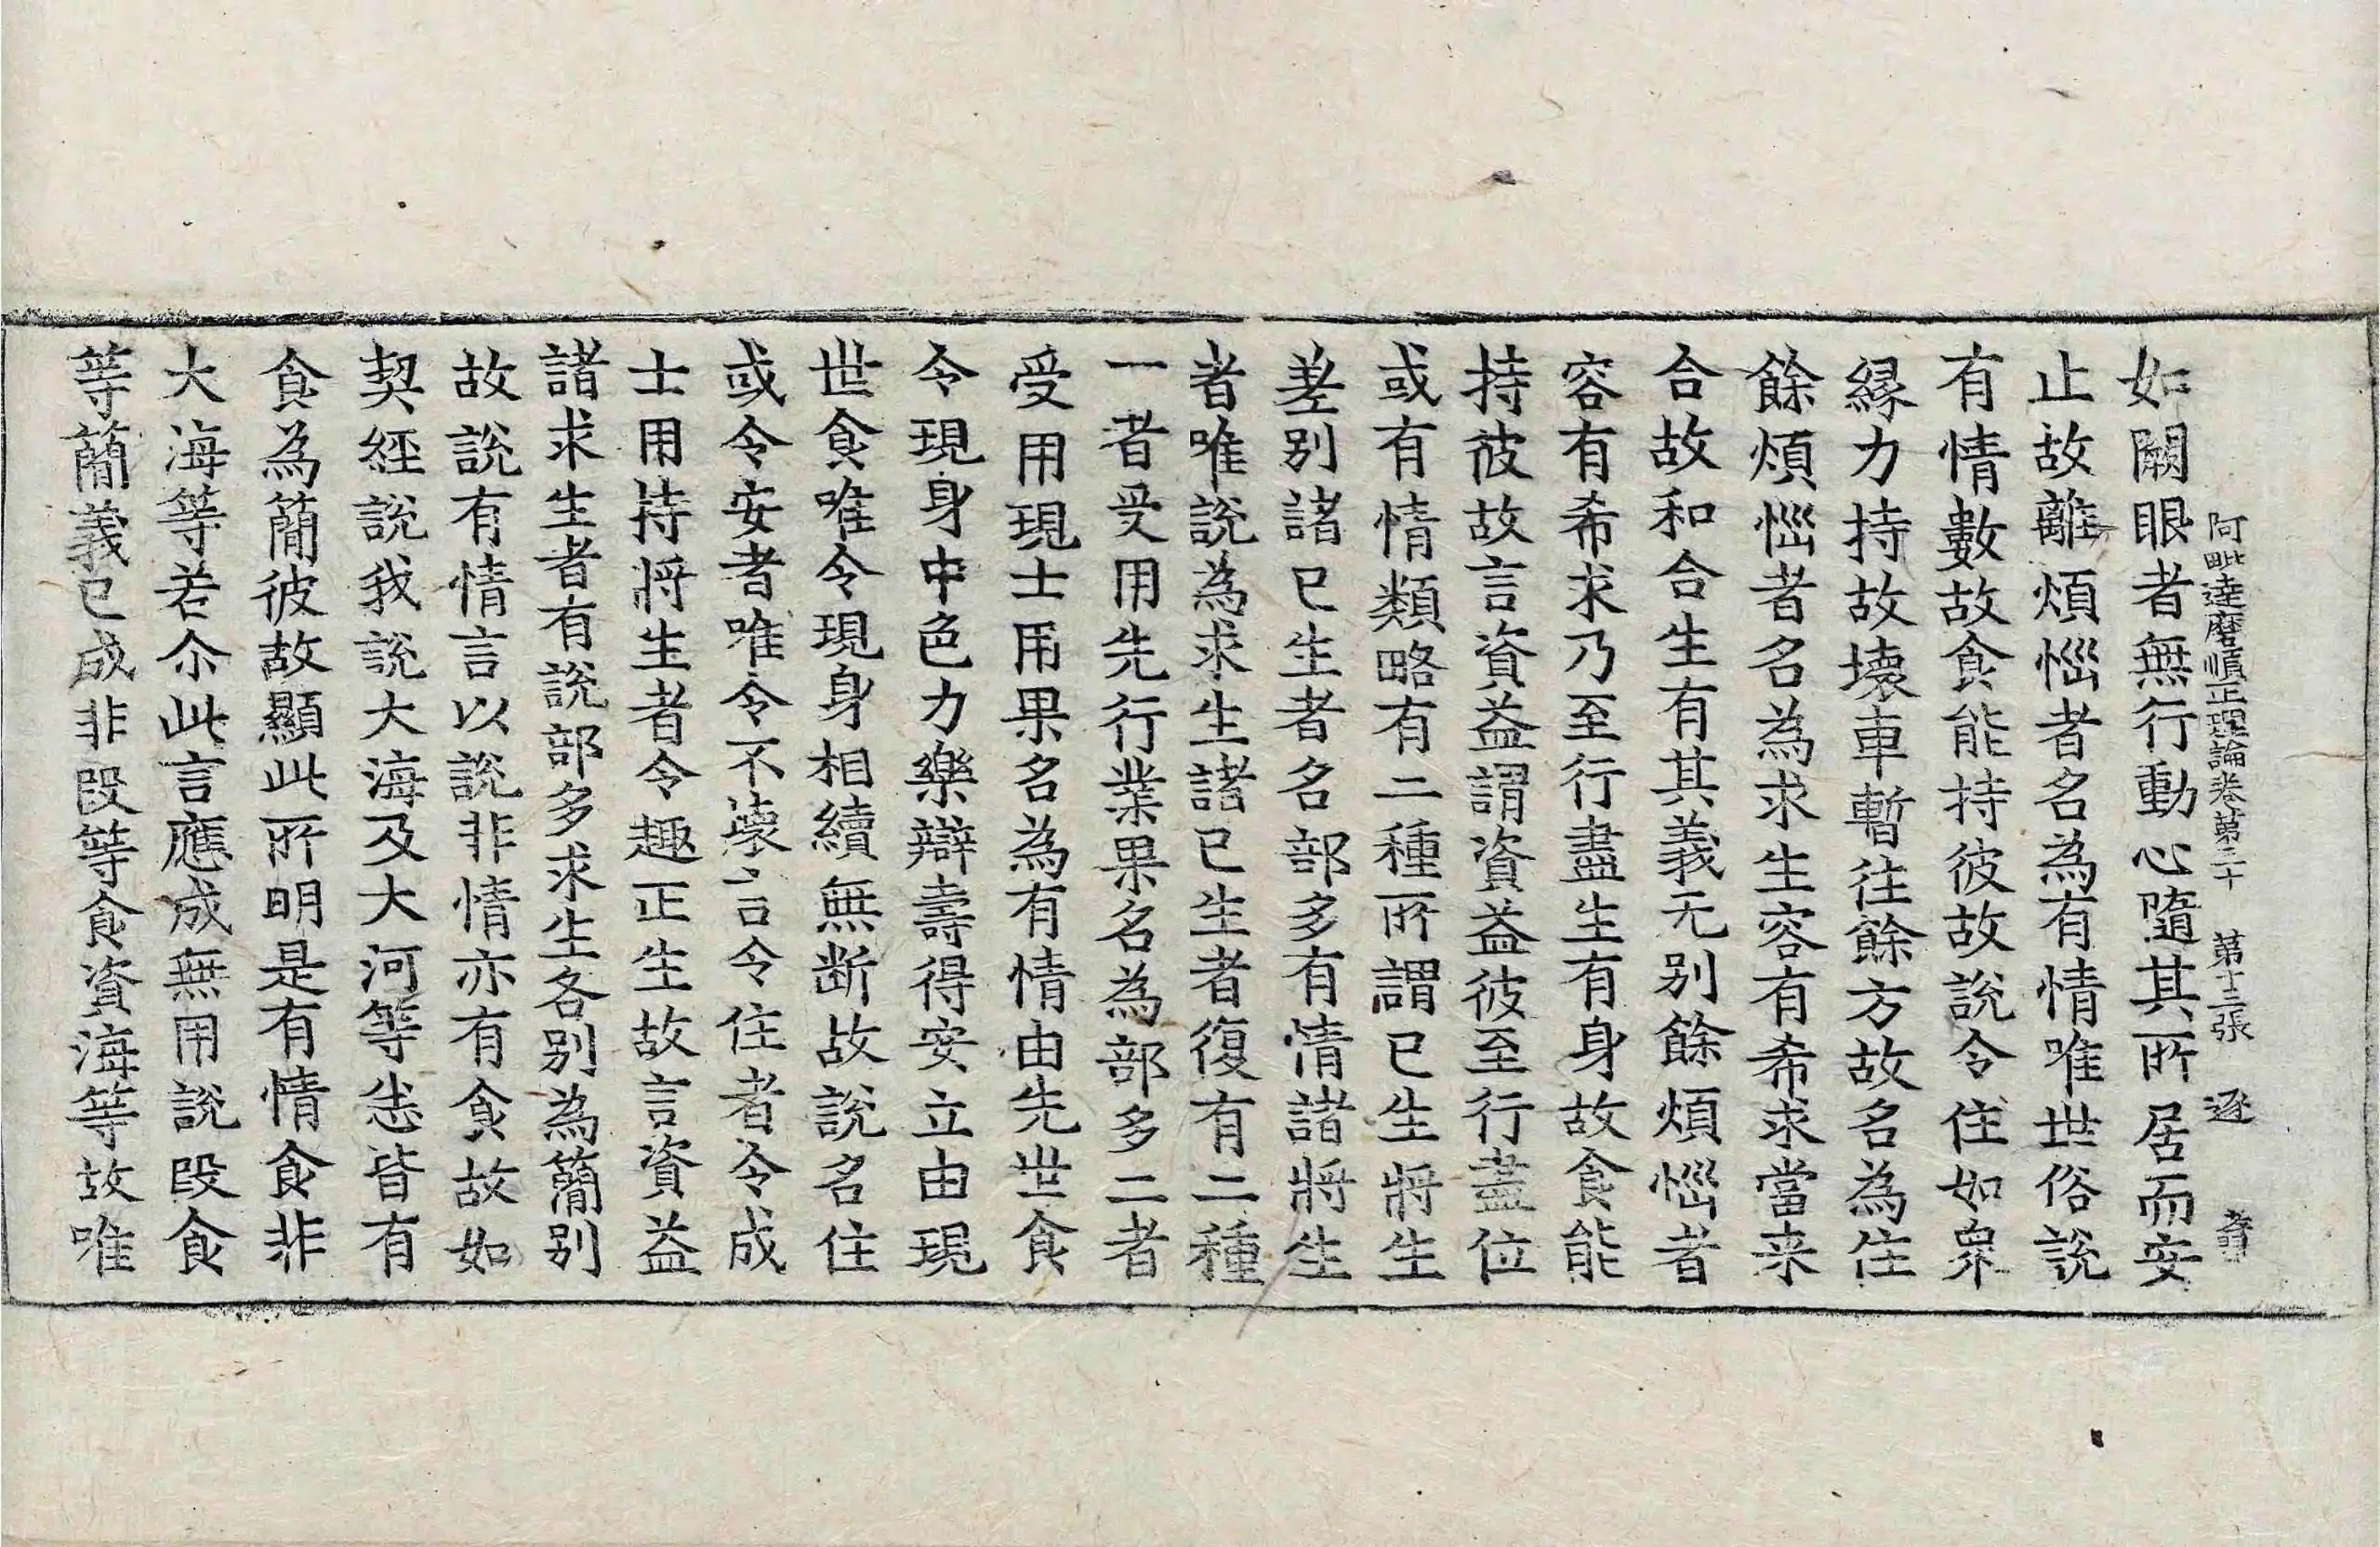 阿毗達磨順正理論卷第三十 第十三張 逐
如闕眼者無行動心隨其所居而安
止故離煩惱者名為有情唯世俗說
有情數故食能持彼故說令住如眾
縁力持故壞車暫往餘方故名為住
餘煩惱者名為求生容有希求當来
合故和合生有其義无別餘煩惱者
容有希求乃至行盡生有身故食能
持彼故言資益謂資益彼至行盡位
或有情類略有二種所謂已生將生
差別諸已生者名部多有情諸將生
者唯說為求生諸已生者復有二種
一者受用先行業果名為部多二者
受用現士用果名為有情由先世食
令現身中色力樂辯壽得安立由現
世食唯令現身相續無断故說名住
或令安者唯令不壞言令住者令成
士用持將生者令趣正生故言資益
諸求生者有說部多求生各別為簡別
故說有情言以說非情亦有食故如
契經說我說大海及大河等恙皆有
食為簡彼故顯此所明是有情食非
大海等若尒此言應成無用說段食
等簡義已成非段等食資海等故唯